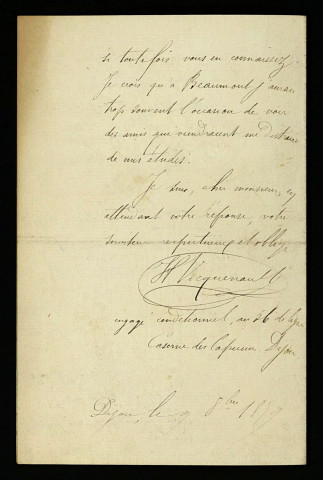 si toutefois vous en connaissez.
Je crois qu'à Beaumont j'aurai
trop souvent l'occasion de voir
des amis qui viendraient me distraire
de mes études.
Je suis, cher monsieur, en
attendant votre réponse, votre
serviteur respectueux et obligé
engagé conditionnel, au 26 de ligne
Caserne des Capucins, Dijon
Dijon, le 9 8bre